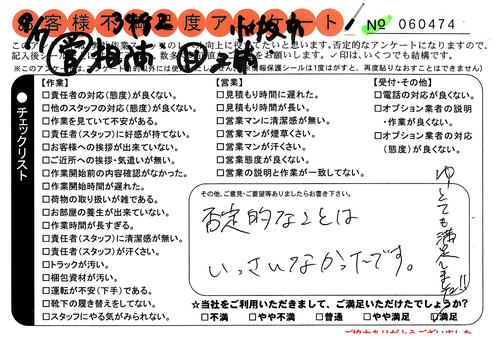 お客様不満足度アンケート
№ 060474
このアンケートは
向上に役立てたいと思います。否定的なアンケートになりますので、
記入後シール
お願いします。✓印は、いくつでも結構です。
●チェックリスト
【作業】
□責任者の対応(態度)が良くない。
□他のスタッフの対応(態度)が良くない。
□作業を見ていて不安がある。
□責任者(スタッフ)に好感が持てない。
□お客様への挨拶が出来ていない。
□ご近所への挨拶・気遣いが無い。
□作業開始前の内容確認がなかった。
□作業開始時間が遅れた。
□荷物の取り扱いが雑である。
□お部屋の養生が出来ていない。
□作業時間が長すぎる。
□責任者(スタッフ)に清潔感が無い。
□責任者(スタッフ)が汗くさい。
□トラックが汚い。
□梱包資材が汚い。
□運転が不安(下手)である。
□靴下の履き替えをしてない。
□スタッフにやる気がみられない。
【営業】
□見積もり時間に遅れた。
□見積もり時間が長い。
□営業マンに清潔感が無い。
□営業マンが煙草くさい。
□営業マンが汗くさい。
□営業態度が良くない。
□営業の説明と作業が一致してない。
【受付・その他】
□電話の対応が良くない。
□オプション業者の説明
・作業が良くない。
□オプション業者の対応
(態度)が良くない。
その他、ご意見・ご要望等ありましたらお書き下さい。
否定的なことは
いっさいなかったです。
とても満足しました!!
☆当社をご利用いただきまして、ご満足いただけたでしょうか?
□不満 □やや不満 □普通 □やや満足 ☑満足
ご協力ありがとうございました